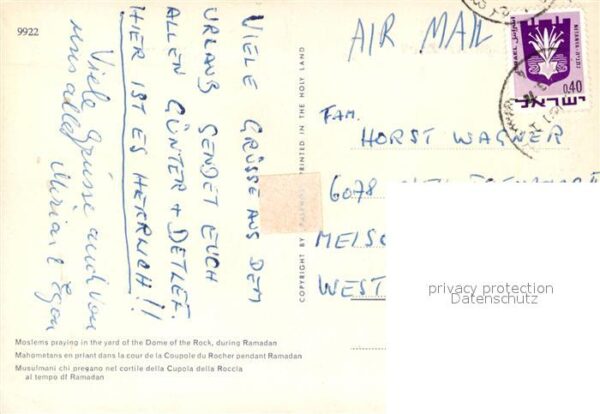 9922
VIELE GRÜSSE AUS DEM
URLAUB SENDET EUCH
ALLEN GÜNTER + DETLEF.
HIER IST ES HERRLICH!!
Viele Grüsse auch von
uns allen
AIR MAIL
FAM.
HORST WAGNER
6078
WEST
ISRAEL
0,40
ישראל
COPYRIGHT BY PALPHOT PRINTED IN THE HOLY LAND
Moslems praying in the yard of the Dome of the Rock, during Ramadan
Mahometans en priant dans la cour de la Coupole du Rocher pendant Ramadan
Musulmani chi pregano nel cortile della Cupola della Roccia
al tempo df Ramadan
privacy protection
Datenschutz